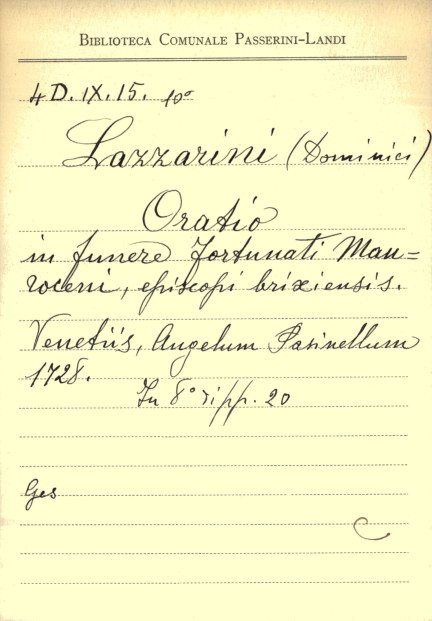 BIBLIOTECA COMUNALE PASSERINI-LANDI
4 D. IX. 15. 10º
Lazzarini (Dominici)
Oratio
in funere Fortunati Mau=
roceni, episcopi brixiensis.
Venetiis, Angelum Pasinellum
1728.
In 8º di pp. 20
Ges
C